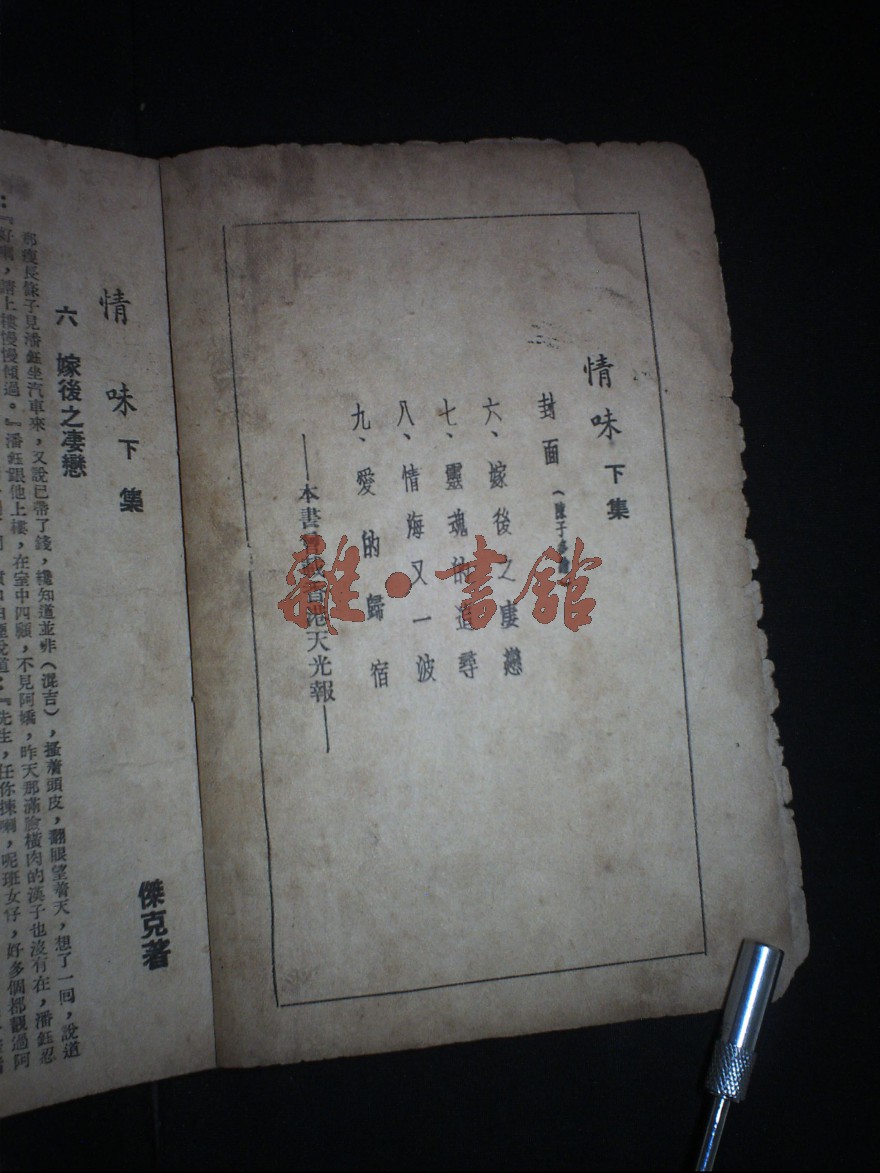 情味下集
封面（陳子多
六、嫁後之凄戀
七、靈魂的追尋
八、情海又一波
九、愛的歸宿
——本書曾載香港天光報——
雜·書館
情味下集
傑克著
六 嫁後之凄戀
那瘦長條子見潘鈺坐汽車來，又說已帶了錢，纔知道並非（混吉），搔着頭皮，翻眼望着天，想了一回，說道
：『好喇，請上樓慢慢傾過。』潘鈺跟他上樓，在室中四顧，不見阿嬌，昨天那滿臉橫肉的漢子也沒有在，潘鈺忍
說道：『先生，任你揀喇，呢班女仔，好多個都靚過阿